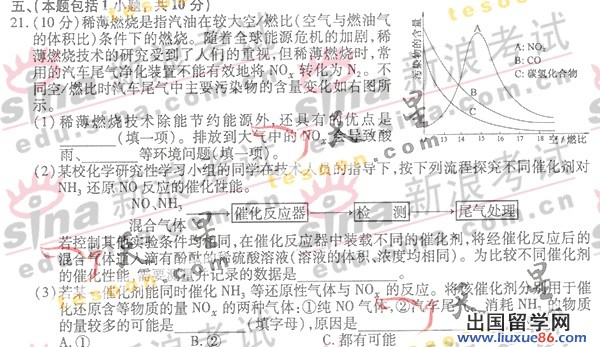 五、(本题包括1小题，共10分)
21.(10分)稀薄燃烧是指汽油在较大空/燃比(空气与燃油气
的体积比)条件下的燃烧。随着全球能源危机的加剧,稀
薄燃烧技术的研究受到了人们的重视,但稀薄燃烧时,常
用的汽车尾气净化装置不能有效地将NOx转化为N2。不
同空/燃比时汽车尾气中主要污染物的含量变化如右图所
示。
污染物的含量
A: NOx
B: CO
C: 碳氢化合物
A
B
C
13 14 15 16 17 18 空/燃比
(1)稀薄燃烧技术除能节约能源外,还具有的优点是
(填一项)。排放到大气中的NOx会导致酸
雨、 等环境问题(填一项)。
(2)某校化学研究性学习小组的同学在技术人员的指导下,按下列流程探究不同催化剂对
NH3还原NO反应的催化性能。
NO、NH3
混合气体 催化反应器 检 测 尾气处理
若控制其他实验条件均相同,在催化反应器中装载不同的催化剂,将经催化反应后的
混合气体 滴有酚酞的稀硫酸溶液(溶液的体积、浓度均相同)。为比较不同催化剂
的催化性能,需要 记录的数据是 。
(3)若某 催化剂能同时催化NH3等还原性气体与NOx的反应。将该催化剂分别用于催
化还原含等物质的量NOx的两种气体:①纯NO气体,②汽车尾气。消耗NH3的物质
的量较多的可能是 (填字母),原因是
A.① B.② C.都有可能
sina 新浪考试
sina 新浪考试
tesoon.com
天星
出国留学网
www.liuxue86.com